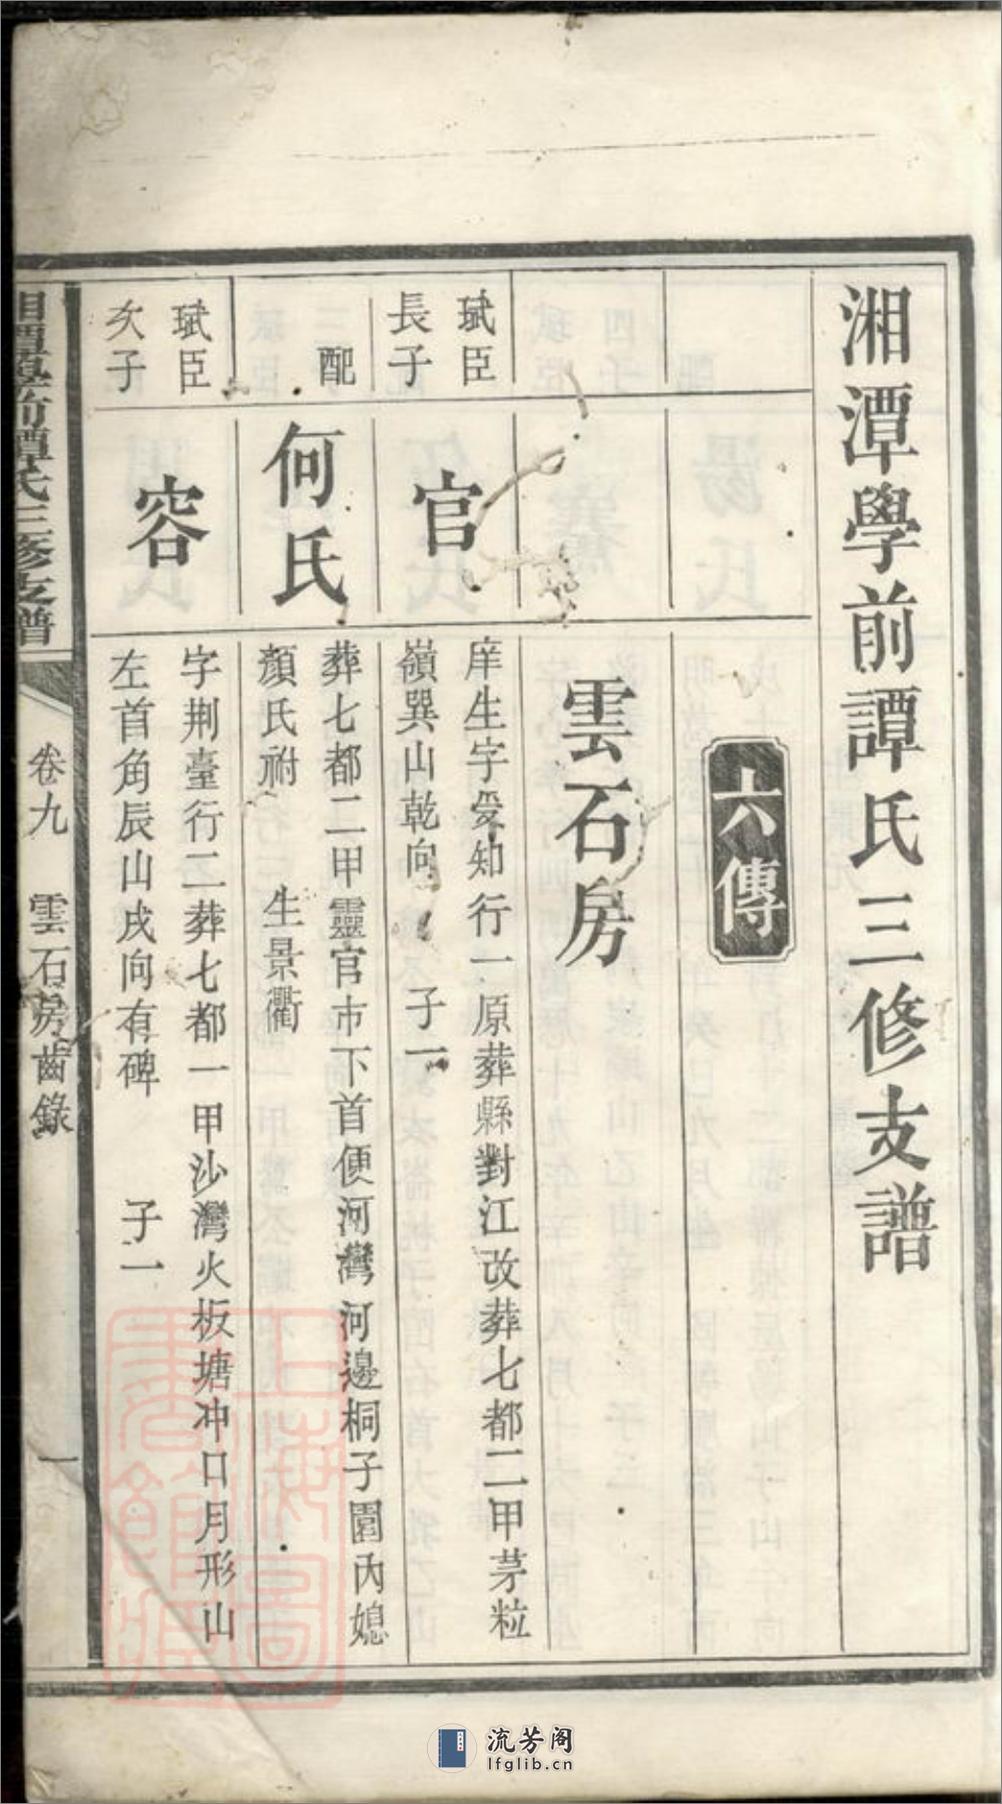 湘潭學前譚氏三修支譜
六傳
雲石房
珷臣
長子
官
庠生字受知行一原葬縣對江改葬七都二甲茅粒
嶺巽山乾向 子一
配
何氏
葬七都二甲靈官市下首便河灣河邊桐子園內媳
顏氏祔 生景衢
珷臣
次子
容
字荆臺行二葬七都一甲沙灣火板塘冲口月形山
左首角辰山戌向有碑 子一
湘潭學前譚氏三修支譜
卷九 雲石房齒錄
一
上海圖書館藏
流芳阁
lfglib.cn